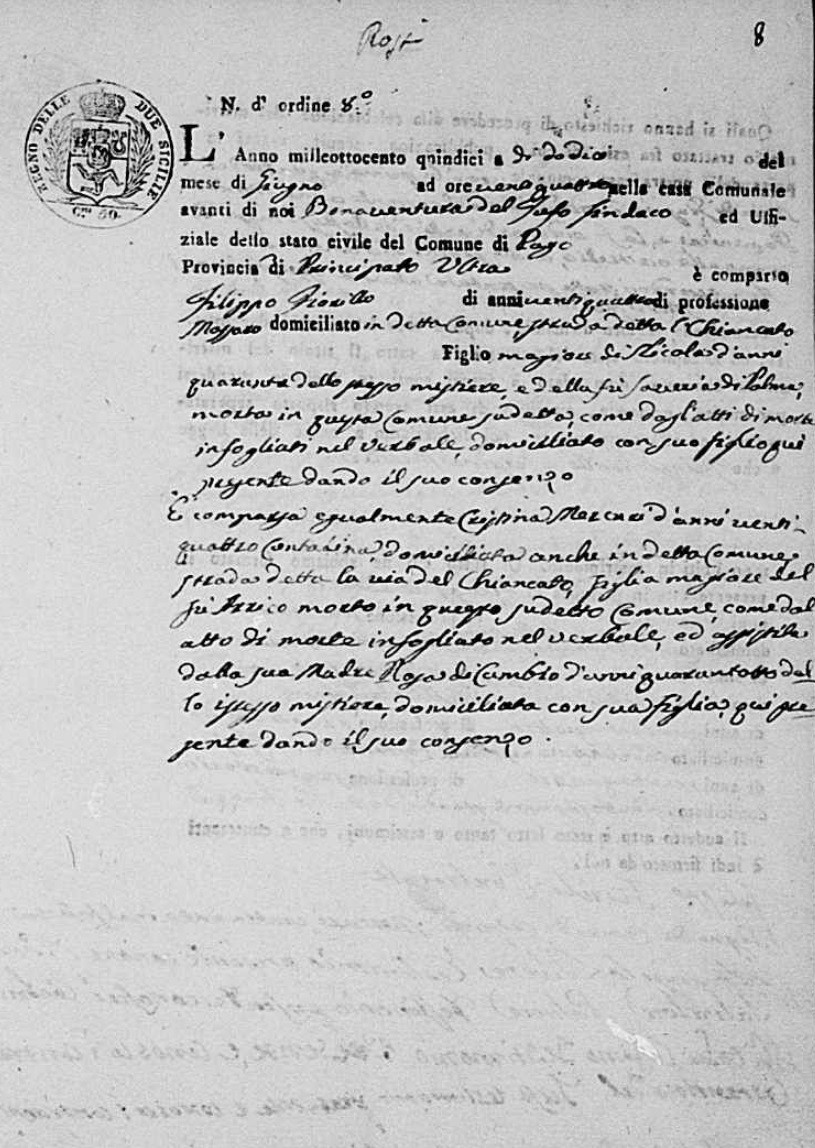 8
REGNO DELLE DUE SICILIE
N. d' ordine 8.°
L' Anno milleottocento quindici a dì dodici del
mese di Giugno ad ore venti quattro nella casa Comunale
avanti di noi Bonaventura del Juso Sindaco ed Uffi-
ziale dello stato civile del Comune di Pago
Provincia di Principato Ultra è comparso
Filippo Fiorillo di anni venti quattro di professione
Massaro domiciliato in detta Comune, strada detta l Chiancato
Figlio magiore di Nicola d'anni
quaranta dello stesso mistiere, e della fù Saveria di Palma,
morta in questa Comune sudetta, come dagl'atti di morte
infogliati nel verbale, domiciliato con suo figlio qui
presente dando il suo consenzo
È comparsa egualmente Cristina d'anni venti-
quattro Contadina, domiciliata anche in detta Comune,
strada detta la via del Chiancato, figlia magiore del
fù Arrico morto in questo sudetto Comune, come dal
atto di morte infogliato nel verbale, ed assistita
dalla sua Madre Rosa di Cambio d'anni quarantotto del
lo istesso mistiere, domiciliata con sua figlia, qui pre
sente dando il suo consenzo.